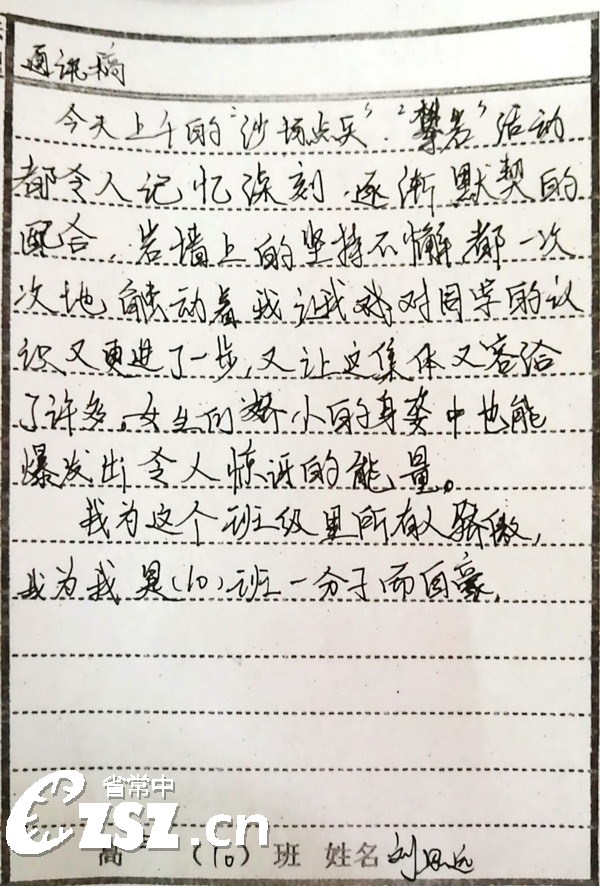 通讯稿
今天上午的“沙场点兵”、“攀岩”活动
都令人记忆深刻.逐渐默契的
配合,岩墙上的坚持不懈都一次
次地触动着我让我对同学的认
识又更进了一步,又让这集体又容洽
了许多。女生们娇小的身姿中也能
爆发出令人惊讶的能量。
我为这个班级里所有人骄傲,
我为我是(10)班一分子而自豪.
省常中
czsz.cn
高一 (10) 班 姓名 刘